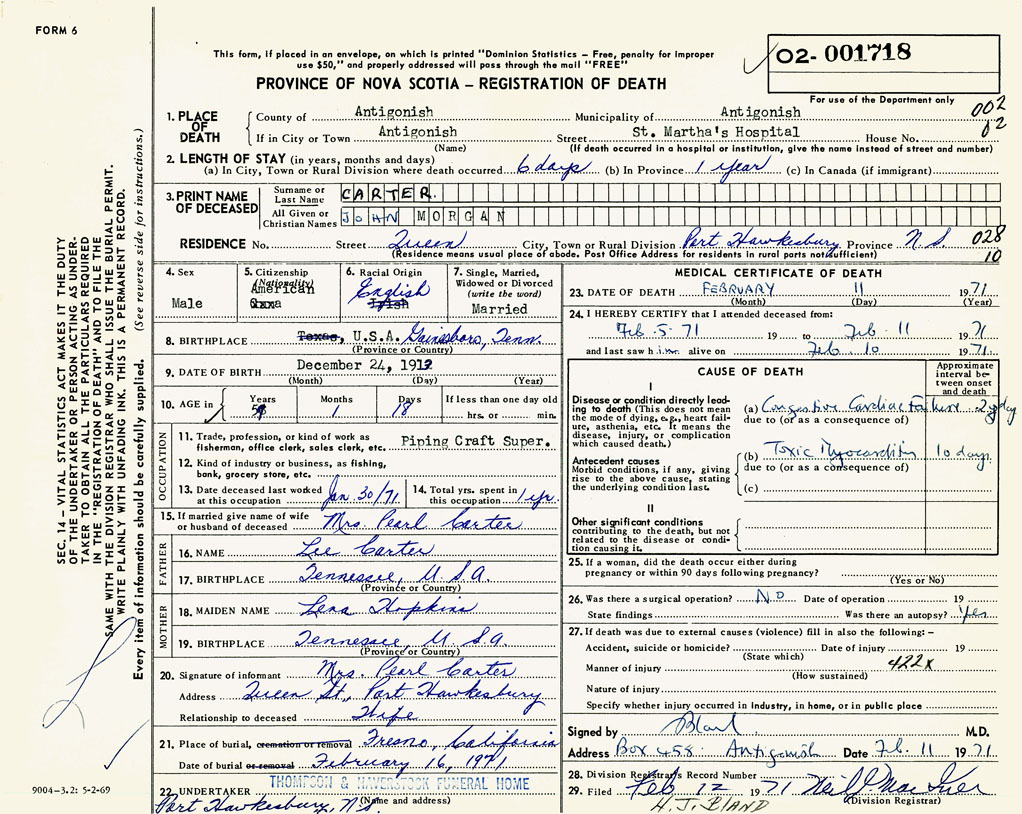 FORM 6
This form, if placed in an envelope, on which is printed "Dominion Statistics – Free, penalty for improper
use $50," and properly addressed will pass through the mail "FREE"
02- 001718
PROVINCE OF NOVA SCOTIA – REGISTRATION OF DEATH
For use of the Department only
002
02
1. PLACE OF DEATH
County of Antigonish Municipality of Antigonish
If in City or Town Antigonish Street St. Martha's Hospital House No.
(Name) (If death occurred in a hospital or institution, give the name instead of street and number)
2. LENGTH OF STAY (in years, months and days)
(a) In City, Town or Rural Division where death occurred 6 days (b) In Province 1 year (c) In Canada (if immigrant)
3. PRINT NAME OF DECEASED
Surname or Last Name CARTER.
All Given or Christian Names JOHN MORGAN
RESIDENCE No. Street Queen City, Town or Rural Division Port Hawkesbury Province N.S. 028
(Residence means usual place of abode. Post Office Address for residents in rural parts not sufficient) 10
4. Sex
Male
5. Citizenship
(Nationality)
American
6. Racial Origin
English
Irish
7. Single, Married,
Widowed or Divorced
(write the word)
Married
8. BIRTHPLACE Texas, U.S.A. Gainsboro, Tenn.
(Province or Country)
9. DATE OF BIRTH December 24, 1912
(Month) (Day) (Year)
10. AGE in
Years
Months
1
Days
18
If less than one day old
hrs. or min.
OCCUPATION
11. Trade, profession, or kind of work as
fisherman, office clerk, sales clerk, etc. Piping Craft Super.
12. Kind of industry or business, as fishing,
bank, grocery store, etc.
13. Date deceased last worked
at this occupation Jan 30/71
14. Total yrs. spent in
this occupation 1 yr.
15. If married give name of wife
or husband of deceased Mrs. Pearl Carter
FATHER
16. NAME Lee Carter
17. BIRTHPLACE Tennessee, U.S.A.
(Province or Country)
MOTHER
18. MAIDEN NAME Lena Hopkins
19. BIRTHPLACE Tennessee U.S.A.
(Province or Country)
20. Signature of informant Mrs. Pearl Carter
Address Queen St., Port Hawkesbury
Relationship to deceased Wife
21. Place of burial, cremation or removal Fresno, California
Date of burial or removal February 16, 1971
THOMPSON & HAVERSTOCK FUNERAL HOME
22. UNDERTAKER
Port Hawkesbury, N.S. (Name and address)
MEDICAL CERTIFICATE OF DEATH
23. DATE OF DEATH FEBRUARY 11 1971
(Month) (Day) (Year)
24. I HEREBY CERTIFY that I attended deceased from:
Feb. 5. 71 19 to Feb. 11 1971
and last saw him alive on Feb. 10 1971.
CAUSE OF DEATH
Approximate
interval be-
tween onset
and death
I
Disease or condition directly lead-
ing to death (This does not mean
the mode of dying, e.g., heart fail-
ure, asthenia, etc. It means the
disease, injury, or complication
which caused death.)
(a) Congestive Cardiac Failure
due to (or as a consequence of)
Antecedent causes
Morbid conditions, if any, giving
rise to the above cause, stating
the underlying condition last.
(b) Toxic Myocarditis 10 days.
due to (or as a consequence of)
(c)
II
Other significant conditions
contributing to the death, but not
related to the disease or condi-
tion causing it.
25. If a woman, did the death occur either during
pregnancy or within 90 days following pregnancy?
(Yes or No)
26. Was there a surgical operation? NO Date of operation 19
State findings Was there an autopsy? Yes
27. If death was due to external causes (violence) fill in also the following: –
Accident, suicide or homicide? Date of injury 19
(State which)
Manner of injury 422X
(How sustained)
Nature of injury
Specify whether injury occurred in industry, in home, or in public place
Signed by Bland M.D.
Address Box 458. Antigonish Date Feb. 11 1971
28. Division Registrar's Record Number
29. Filed Feb 12 1971
(Division Registrar)
H.J. BLAND
SEC. 14 – VITAL STATISTICS ACT MAKES IT THE DUTY
OF THE UNDERTAKER OR PERSON ACTING AS UNDER-
TAKER TO OBTAIN ALL THE PARTICULARS REQUIRED
IN THE "REGISTRATION OF DEATH" AND TO FILE THE
SAME WITH THE DIVISION REGISTRAR WHO SHALL ISSUE THE BURIAL PERMIT.
WRITE PLAINLY WITH UNFADING INK. THIS IS A PERMANENT RECORD.
Every item of information should be carefully supplied. (See reverse side for instructions.)
9004–3.2: 5-2-69